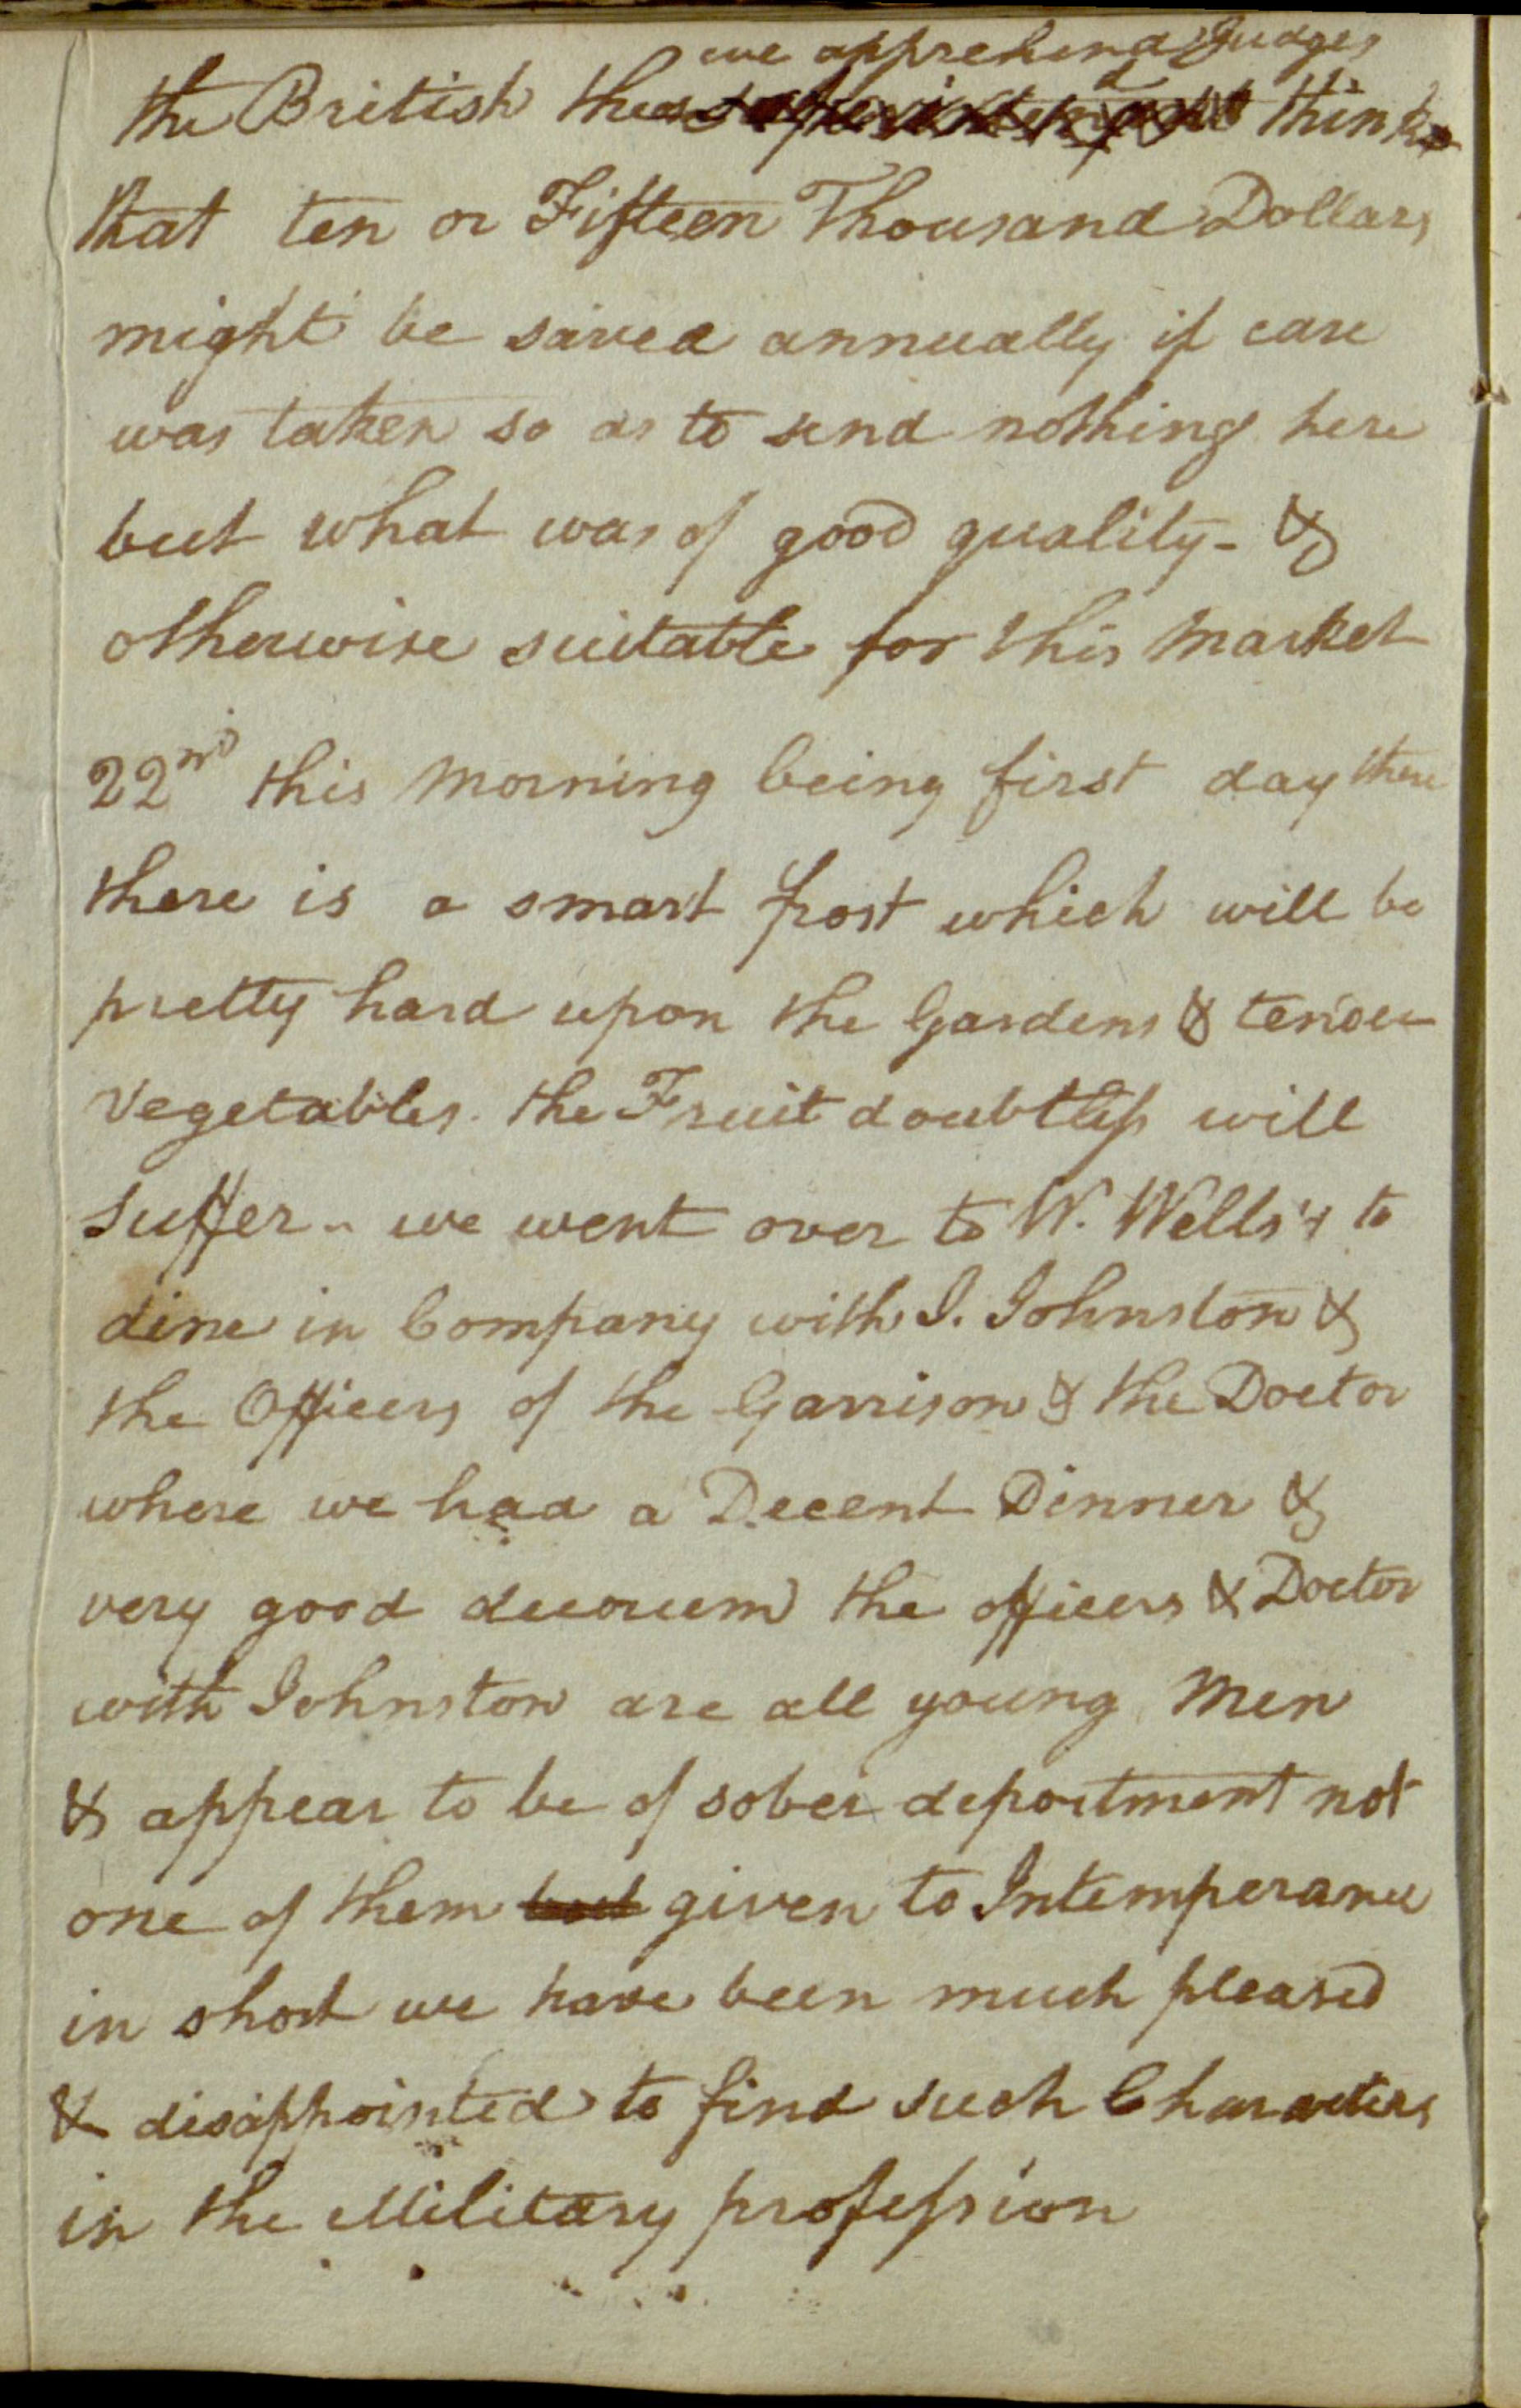 we apprehend Judges
the British these think
that ten or Fifteen Thousand Dollars
might be saved annually if care
was taken so as to send nothing here
but what was of good quality - &
otherwise suitable for this Market
22nd this Morning being first day there
there is a smart frost which will be
pretty hard upon the Gardens & tender
Vegetables. the Fruit doubtless will
suffer - we went over to W. Wells's to
dine in Company with J. Johnston &
the Officers of the Garrison & the Doctor
where we had a Decent Dinner &
very good decorum the officers & Doctor
with Johnston are all young Men
& appear to be of sober deportment not
one of them but given to Intemperance
in short we have been much pleased
& disappointed to find such Characters
in the Military profession